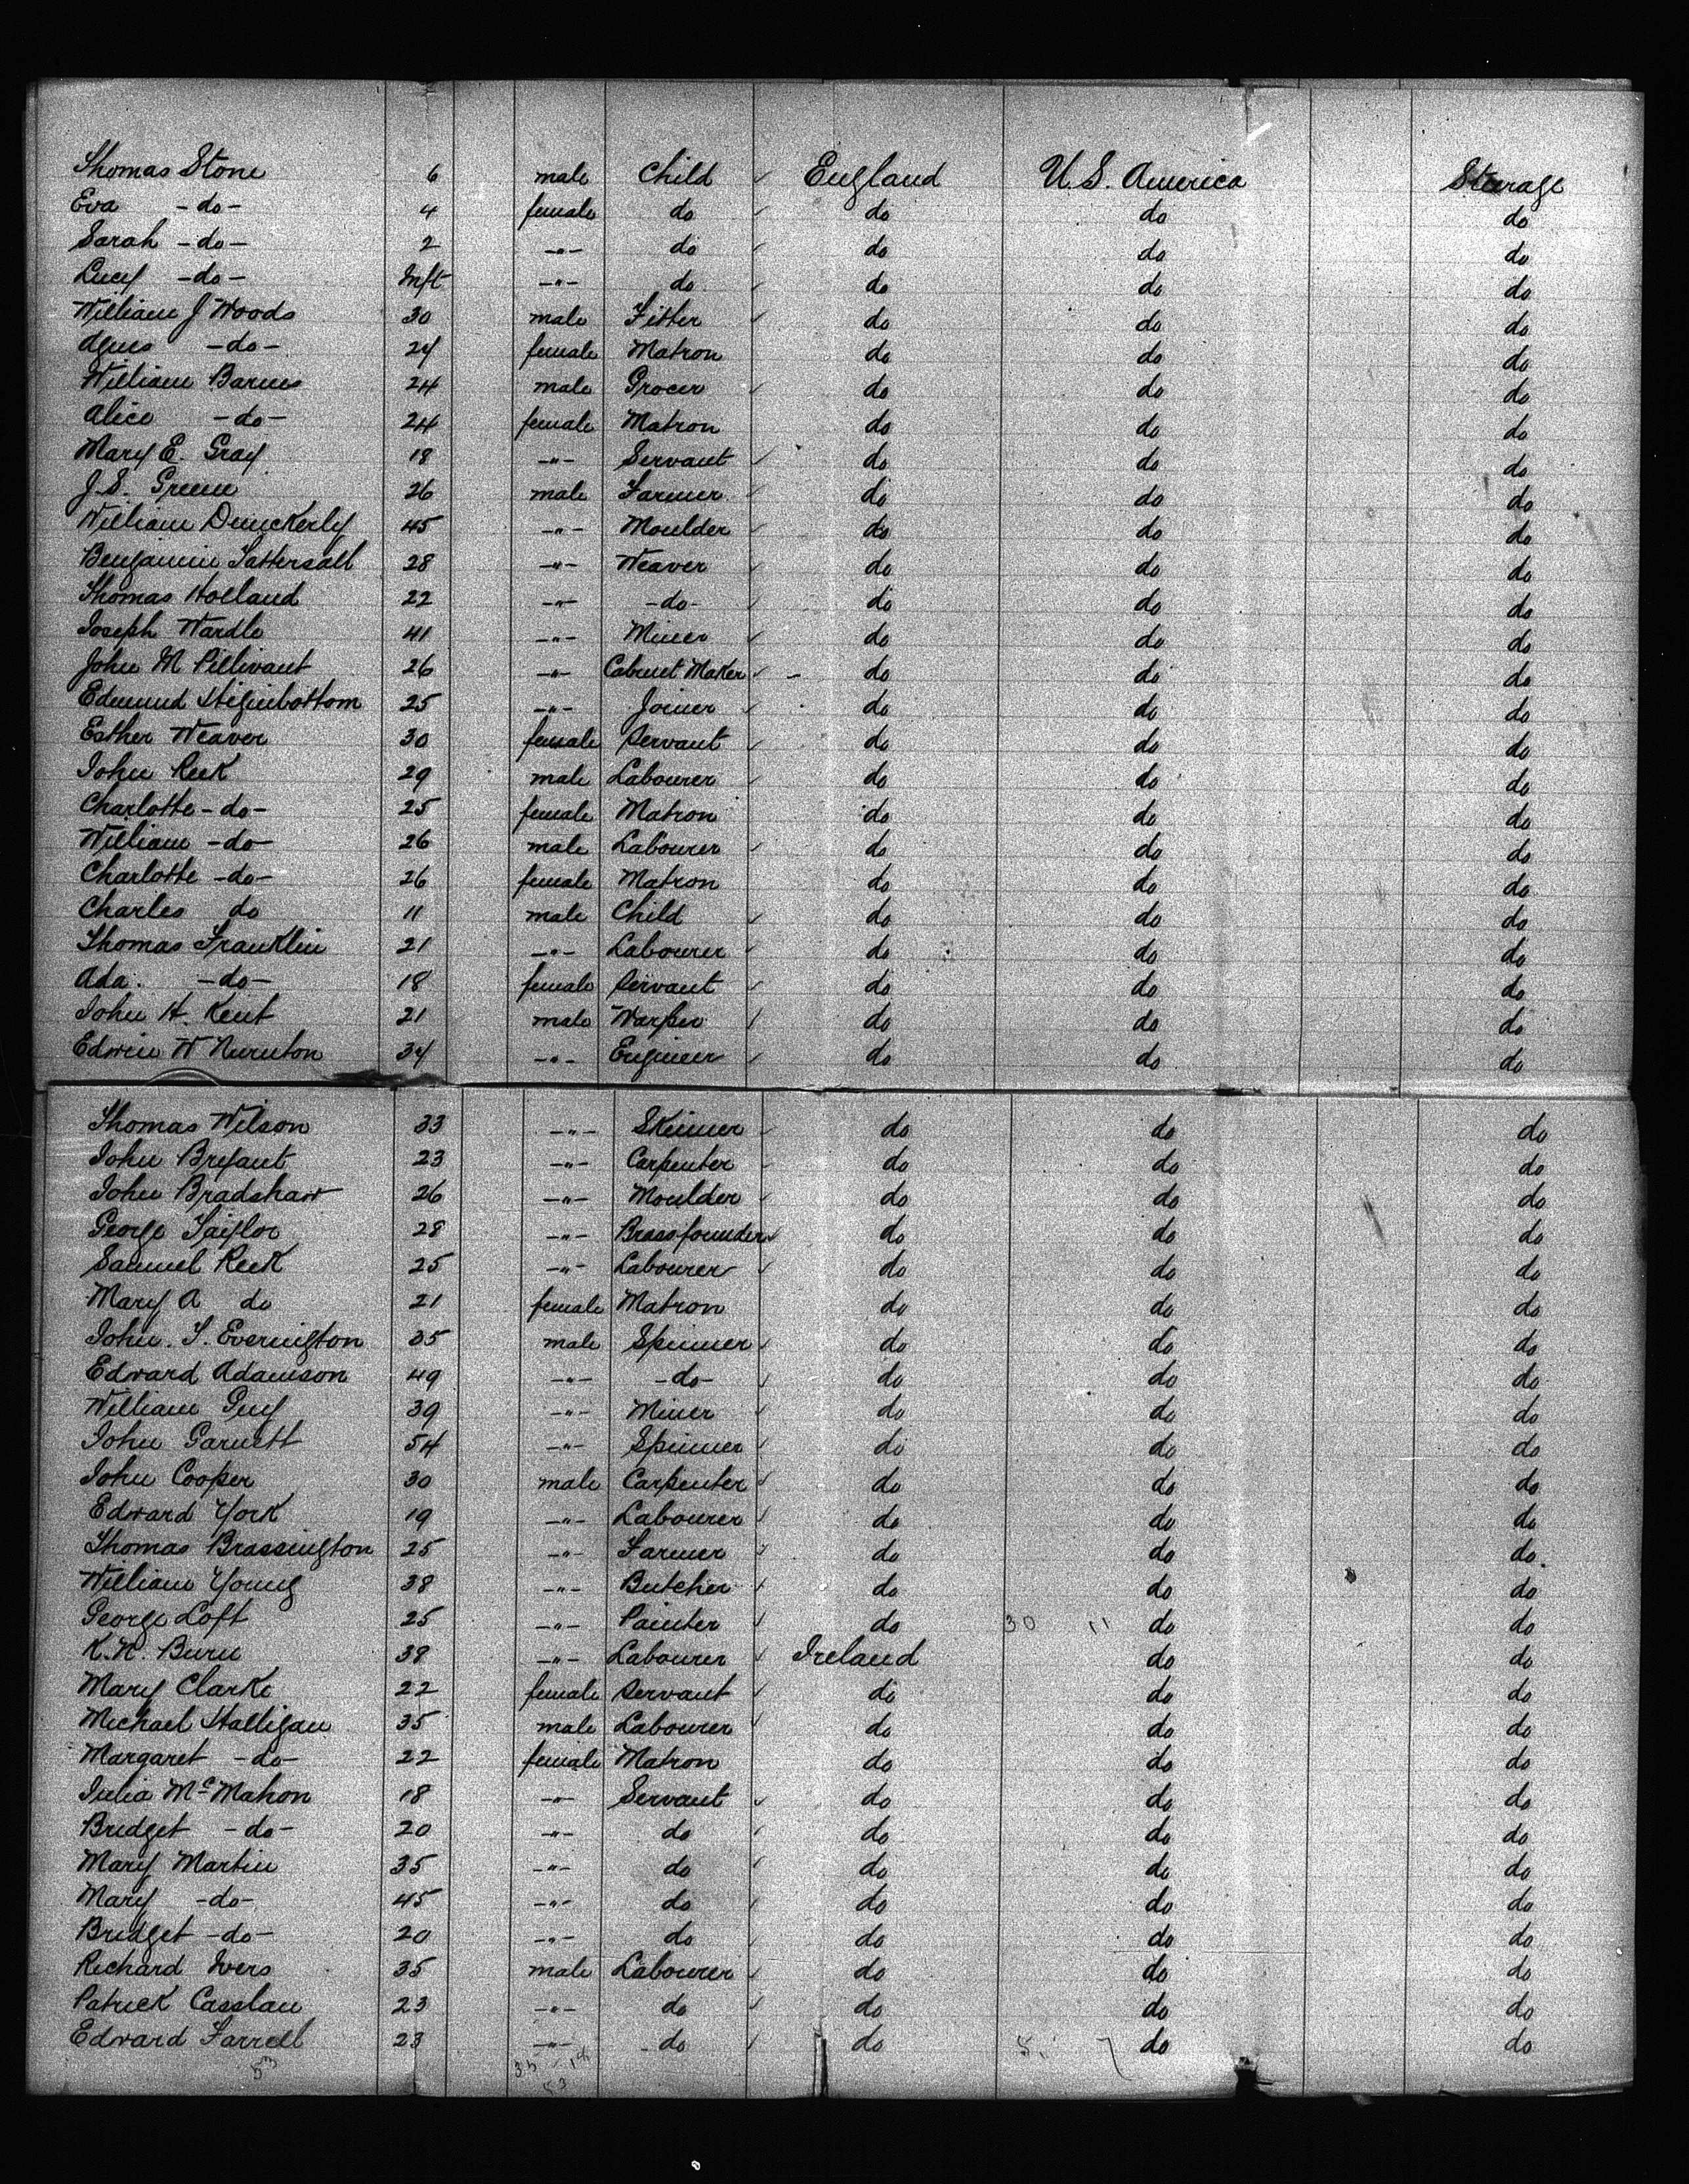 Thomas Stone 6 male Child ✓ England U.S. America Steerage
Eva -do- 4 female do ✓ do do do
Sarah -do- 2 -"- do ✓ do do do
Lucy -do- Inft -"- do ✓ do do do
William J Woods 30 male Fitter ✓ do do do
Agnes -do- 24 female Matron do do do
William Barnes 24 male Grocer ✓ do do do
Alice -do- 24 female Matron do do do
Mary E. Gray 18 -"- Servant ✓ do do do
J. S. Greene 26 male Farmer ✓ do do do
William Dunckerly 45 -"- Moulder ✓ do do do
Benjamin Tattersall 28 -"- Weaver ✓ do do do
Thomas Holland 22 -"- -do- ✓ do do do
Joseph Wardle 41 -"- Miner ✓ do do do
John M Pillivant 26 -"- Cabinet Maker ✓ do do do
Edmund Higinbottom 25 -"- Joiner ✓ do do do
Esther Weaver 30 female Servant ✓ do do do
John Reek 29 male Labourer ✓ do do do
Charlotte -do- 25 female Matron do do do
William -do- 26 male Labourer ✓ do do do
Charlotte -do- 26 female Matron do do do
Charles do 11 male Child ✓ do do do
Thomas Franklin 21 -"- Labourer ✓ do do do
Ada. -do- 18 female Servant ✓ do do do
John H. Kent 21 male Warper ✓ do do do
Edwin W 34 -"- Engineer ✓ do do do
Thomas Wilson 33 -"- Skinner ✓ do do do
John Bryant 23 -"- Carpenter ✓ do do do
John Bradshaw 26 -"- Moulder ✓ do do do
George Taylor 28 -"- Brassfounder ✓ do do do
Samuel Reek 25 -"- Labourer ✓ do do do
Mary A do 21 female Matron do do do
John. T. Everington 35 male Spinner ✓ do do do
Edward Adamson 49 -"- -do- ✓ do do do
William Guy 39 -"- Miner ✓ do do do
John Garnett 54 -"- Spinner ✓ do do do
John Cooper 30 male Carpenter ✓ do do do
Edward York 19 -"- Labourer ✓ do do do
Thomas Brassington 25 -"- Farmer ✓ do do do.
William Young 38 -"- Butcher ✓ do do do
George Loft 25 -"- Painter ✓ do 30 11 do do
K. N. Burn 38 -"- Labourer ✓ Ireland do do
Mary Clarke 22 female Servant ✓ do do do
Michael Halligan 35 male Labourer ✓ do do do
Margaret -do- 22 female Matron do do do
Julia McMahon 18 -"- Servant ✓ do do do
Bridget -do- 20 -"- do ✓ do do do
Mary Martin 35 -"- do ✓ do do do
Mary -do- 45 -"- do ✓ do do do
Bridget -do- 20 -"- do ✓ do do do
Richard Ivers 35 male Labourer ✓ do do do
Patrick Casslan 23 -"- do ✓ do do do
Edward Farrell 23 -"- do ✓ do do do
53
53